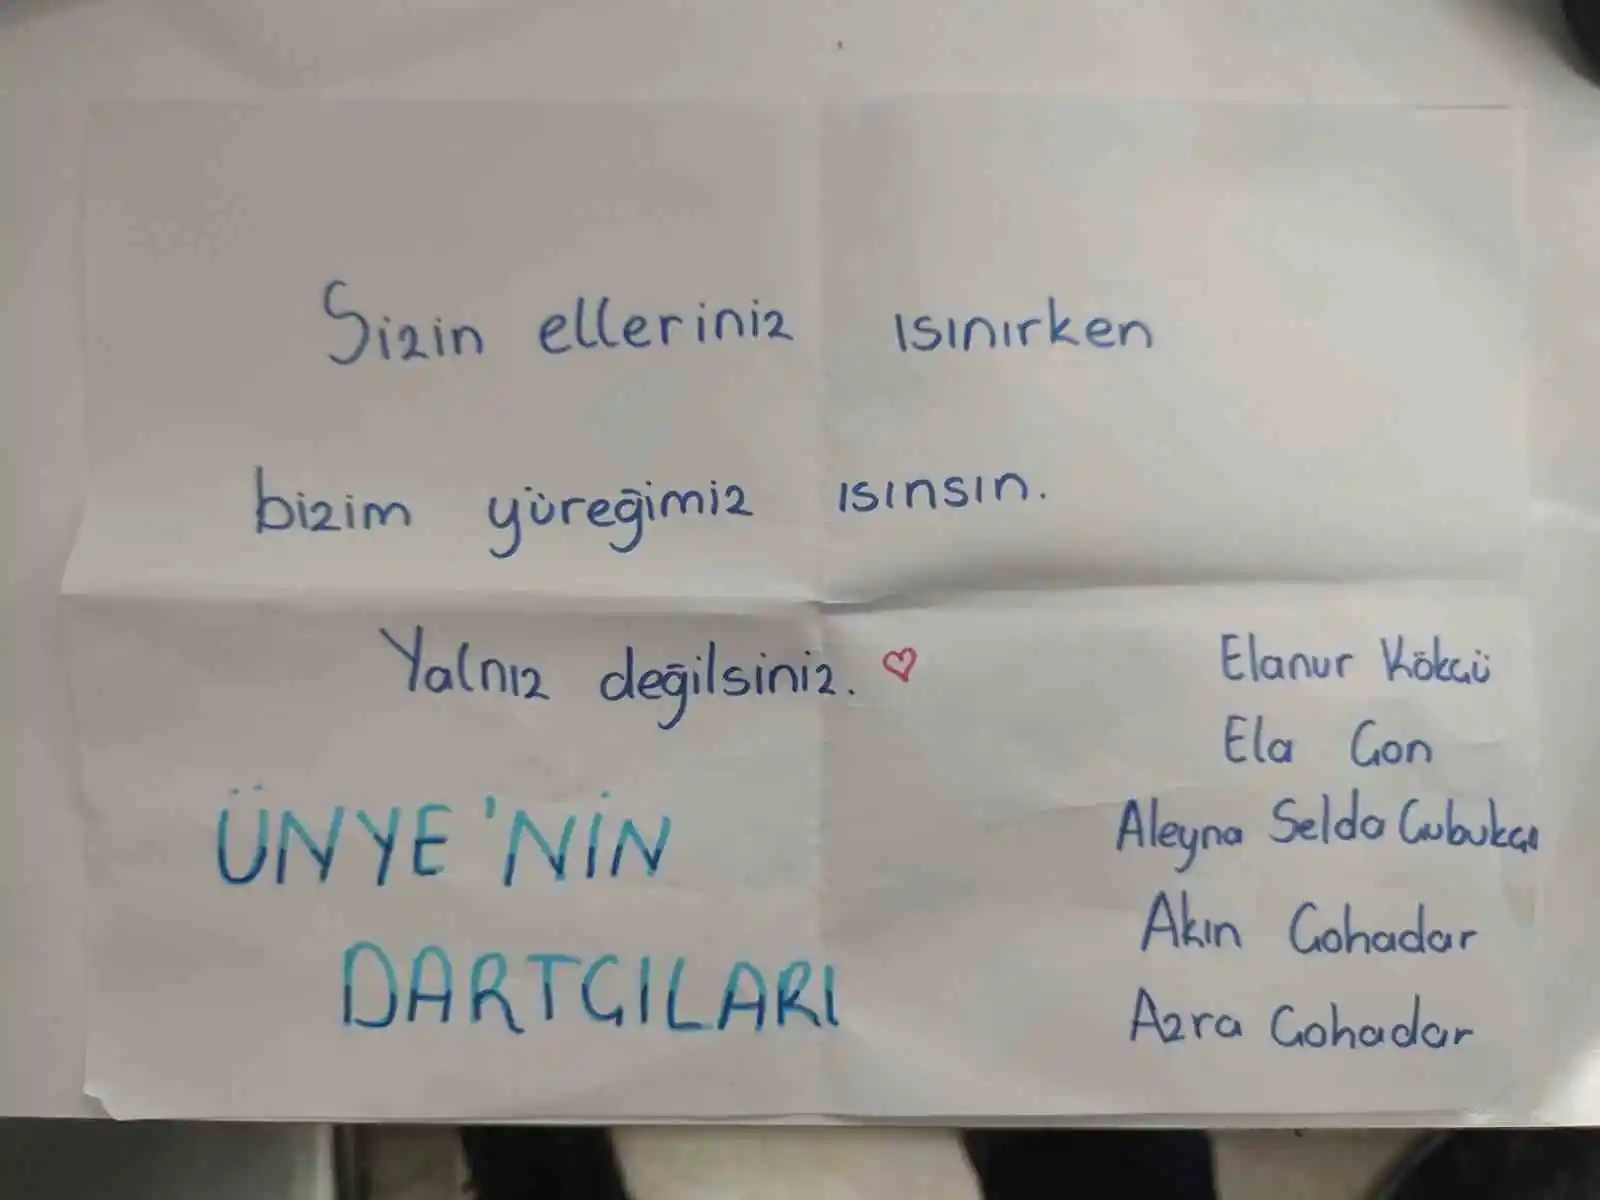 Sizin elleriniz ısınırken
bizim yüreğimiz ısınsın.
Yalnız değilsiniz. ♡
ÜNYE'NİN
DARTCILARI
Elanur Kökcü
Ela Con
Aleyna Selda Cubukcu
Akın Cohadar
Azra Cohadar